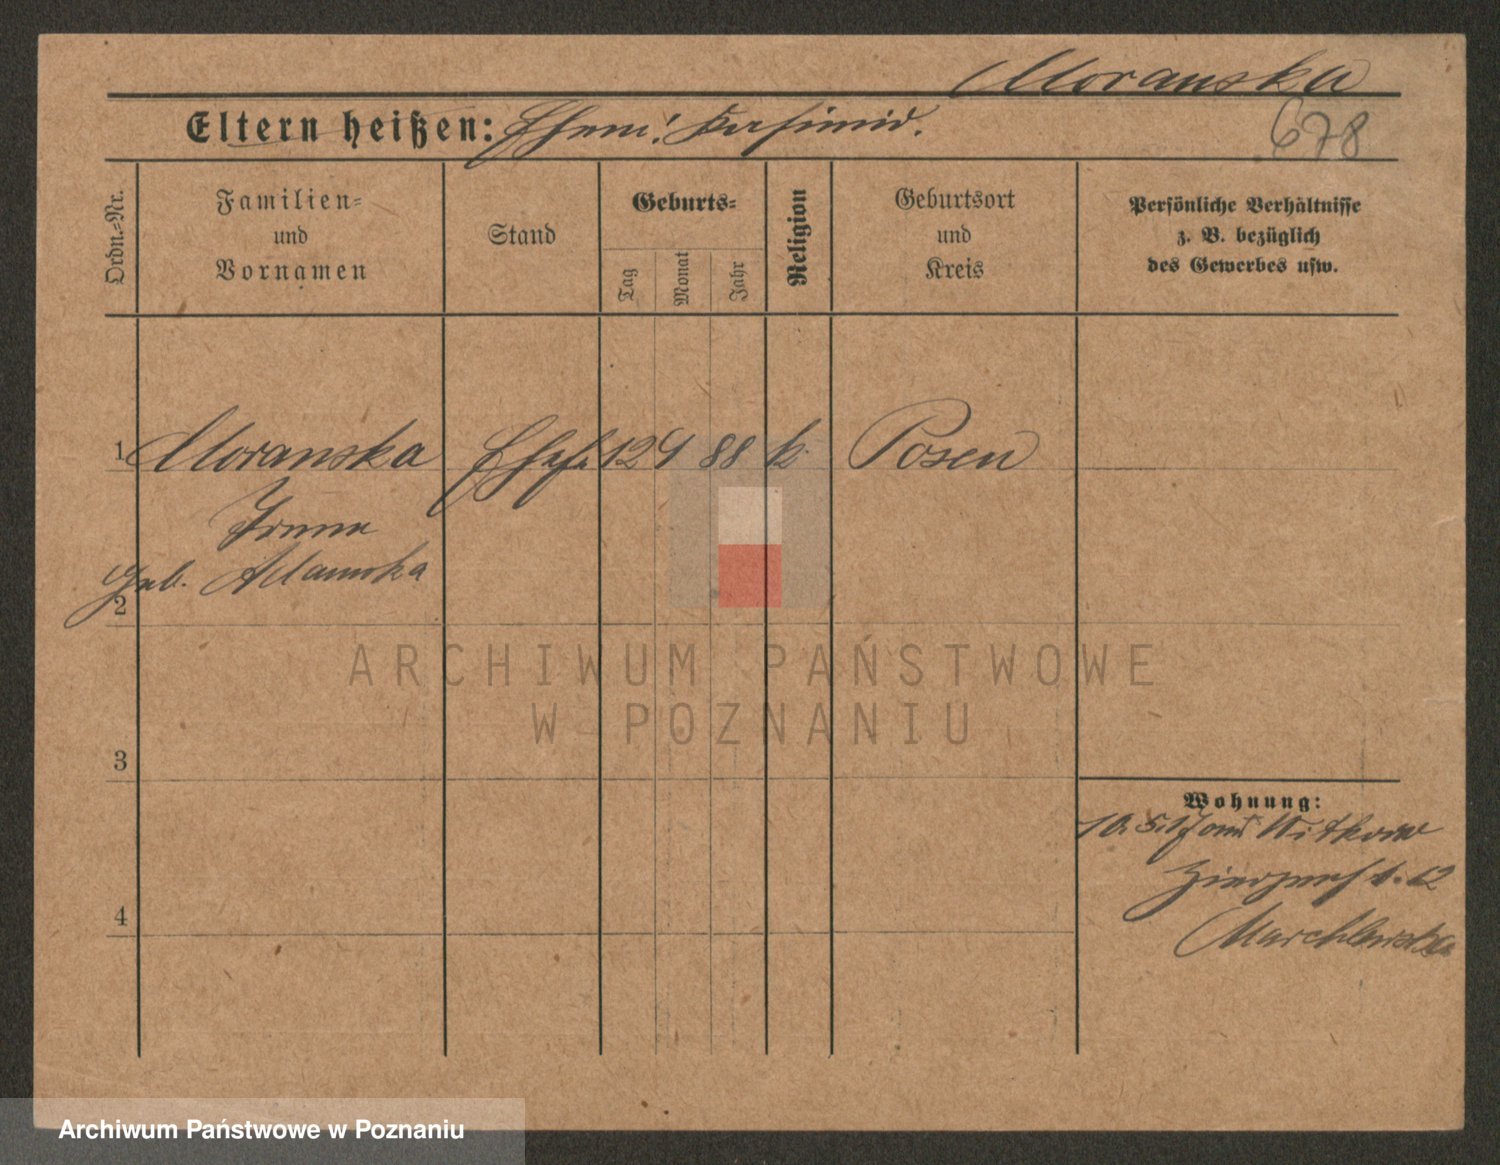 Moranska
Eltern heißen: Ehem: Kasimir.
678
Ordn.=Nr.
Familien=
und
Vornamen
Stand
Geburts=
Tag
Monat
Jahr
Religion
Geburtsort
und
Kreis
Persönliche Verhältnisse
z. B. bezüglich
des Gewerbes usw.
1 Moranska Ehefr 12 9 88 k. Posen
Irena
geb. Adamska
2
3
4
Wohnung:
10. 5. 17 aus Witkowo
12
Marchlewska
ARCHIWUM PAŃSTWOWE
W POZNANIU
Archiwum Państwowe w Poznaniu